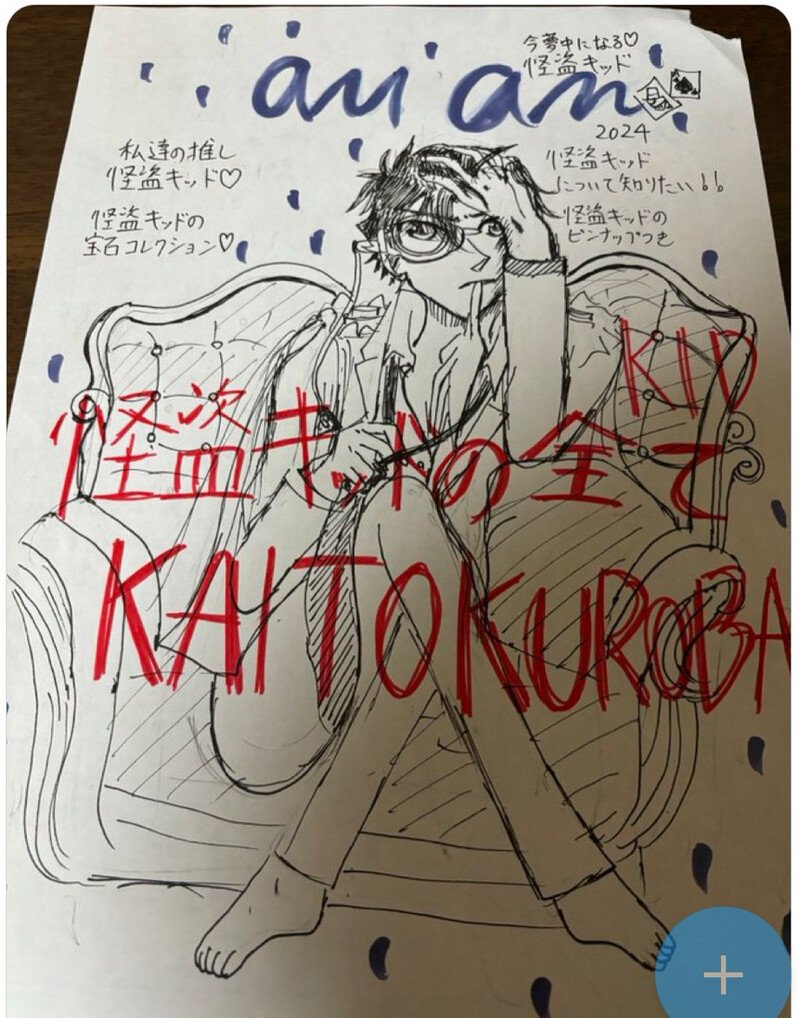 au an
今夢中になる♡
怪盗キッド
2024
私達の推し
怪盗キッド♡
怪盗キッドの
宝石コレクション♡
怪盗キッド
について知りたい!!
怪盗キッドの
ピンナップつき
KID
怪盗キッドの全て
KAITOKUROBA